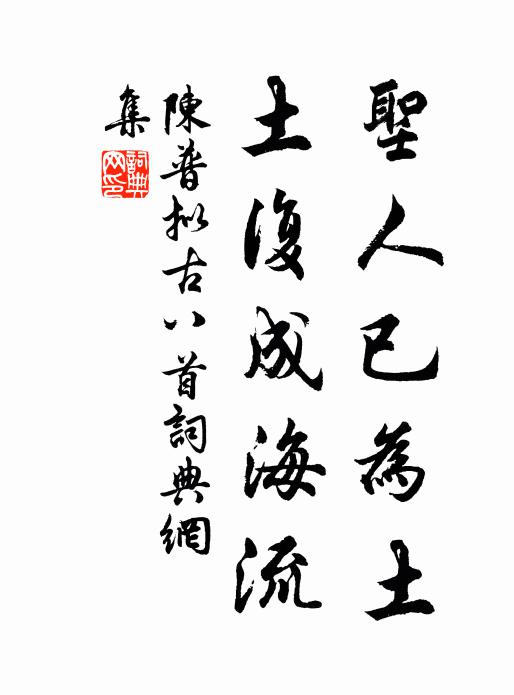 聖人已為土
土復成海流
陳普拟古八首詞典網
集
詞典
网印